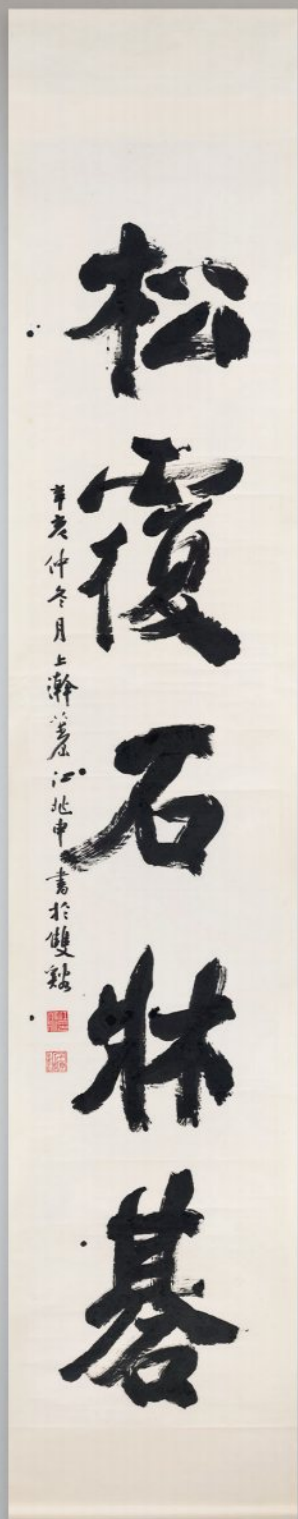 松覆石牀碁
辛亥仲冬月上澣江兆申書於雙谿